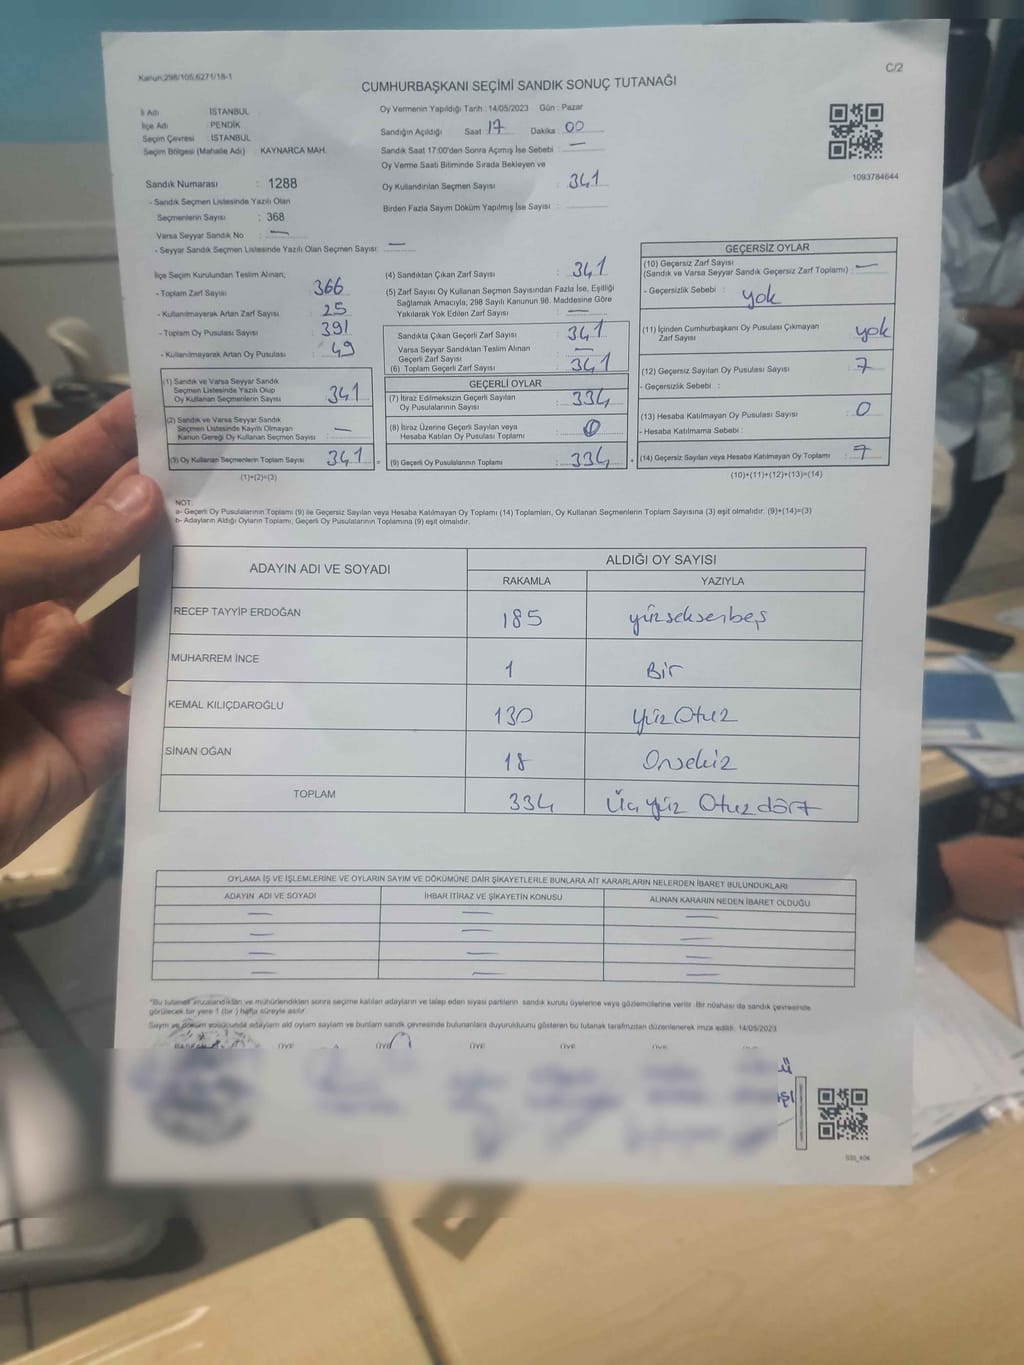 Kanun:298/105;6271/18-1
C/2
CUMHURBAŞKANI SEÇİMİ SANDIK SONUÇ TUTANAĞI
İl Adı İSTANBUL
İlçe Adı : PENDİK
Seçim Çevresi : İSTANBUL
Seçim Bölgesi (Mahalle Adı) : KAYNARCA MAH.
Sandık Numarası : 1288
- Sandık Seçmen Listesinde Yazılı Olan
Seçmenlerin Sayısı : 368
Varsa Seyyar Sandık No : —
- Seyyar Sandık Seçmen Listesinde Yazılı Olan Seçmen Sayısı: —
Oy Vermenin Yapıldığı Tarih : 14/05/2023 Gün : Pazar
Sandığın Açıldığı Saat : 17 Dakika : 00
Sandık Saat 17:00'den Sonra Açımış İse Sebebi : —
Oy Verme Saati Bitiminde Sırada Bekleyen ve
Oy Kullandırılan Seçmen Sayısı : 341
Birden Fazla Sayım Döküm Yapılmış İse Sayısı :
1093784644
İlçe Seçim Kurulundan Teslim Alınan;
- Toplam Zarf Sayısı : 366
- Kullanılmayarak Artan Zarf Sayısı : 25
- Toplam Oy Pusulası Sayısı : 391
- Kullanılmayarak Artan Oy Pusulası : 49
(1) Sandık ve Varsa Seyyar Sandık
Seçmen Listesinde Yazılı Olup
Oy Kullanan Seçmenlerin Sayısı : 341
(2) Sandık ve Varsa Seyyar Sandık
Seçmen Listesinde Kayıtlı Olmayan
Kanun Gereği Oy Kullanan Seçmen Sayısı : —
(3) Oy Kullanan Seçmenlerin Toplam Sayısı : 341
(1)+(2)=(3)
(4) Sandıktan Çıkan Zarf Sayısı : 341
(5) Zarf Sayısı Oy Kullanan Seçmen Sayısından Fazla İse, Eşitliği
Sağlamak Amacıyla; 298 Sayılı Kanunun 98. Maddesine Göre
Yakılarak Yok Edilen Zarf Sayısı : —
Sandıkta Çıkan Geçerli Zarf Sayısı : 341
Varsa Seyyar Sandıktan Teslim Alınan
Geçerli Zarf Sayısı : —
(6) Toplam Geçerli Zarf Sayısı : 341
GEÇERLİ OYLAR
(7) İtiraz Edilmeksizin Geçerli Sayılan
Oy Pusulalarının Sayısı : 334
(8) İtiraz Üzerine Geçerli Sayılan veya
Hesaba Katılan Oy Pusulası Toplamı : 0
(9) Geçerli Oy Pusulalarının Toplamı : 334
GEÇERSİZ OYLAR
(10) Geçersiz Zarf Sayısı
(Sandık ve Varsa Seyyar Sandık Geçersiz Zarf Toplamı) : —
- Geçersizlik Sebebi : yok
(11) İçinden Cumhurbaşkanı Oy Pusulası Çıkmayan
Zarf Sayısı : yok
(12) Geçersiz Sayılan Oy Pusulası Sayısı : 7
- Geçersizlik Sebebi :
(13) Hesaba Katılmayan Oy Pusulası Sayısı : 0
- Hesaba Katılmama Sebebi :
(14) Geçersiz Sayılan veya Hesaba Katılmayan Oy Toplamı : 7
(10)+(11)+(12)+(13)=(14)
NOT:
a- Geçerli Oy Pusulalarının Toplamı (9) ile Geçersiz Sayılan veya Hesaba Katılmayan Oy Toplamı (14) Toplamları, Oy Kullanan Seçmenlerin Toplam Sayısına (3) eşit olmalıdır. (9)+(14)=(3)
b- Adayların Aldığı Oyların Toplamı, Geçerli Oy Pusulalarının Toplamına (9) eşit olmalıdır.
ADAYIN ADI VE SOYADI ALDIĞI OY SAYISI
RAKAMLA YAZIYLA
RECEP TAYYİP ERDOĞAN 185 yüzseksenbeş
MUHARREM İNCE 1 Bir
KEMAL KILIÇDAROĞLU 130 Yüz Otuz
SİNAN OĞAN 18 Onsekiz
TOPLAM 334 Üç yüz Otuz dört
OYLAMA İŞ VE İŞLEMLERİNE VE OYLARIN SAYIM VE DÖKÜMÜNE DAİR ŞİKAYETLERLE BUNLARA AİT KARARLARIN NELERDEN İBARET BULUNDUKLARI
ADAYIN ADI VE SOYADI İHBAR İTİRAZ VE ŞİKAYETİN KONUSU ALINAN KARARIN NEDEN İBARET OLDUĞU
— — —
— — —
— — —
— — —
*Bu tutanak imzalandıktan ve mühürlendikten sonra seçime katılan adayların ve talep eden siyasi partilerin sandık kurulu üyelerine veya gözlemcilerine verilir. Bir nüshası da sandık çevresinde
görülecek bir yere 1 (bir) hafta süreyle asılır.
Sayım ve döküm sonucunda adayların aldığı oyların sayılarını ve bunların sandık çevresinde bulunanlara duyurulduğunu gösteren bu tutanak tarafımızdan düzenlenerek imza edildi. 14/05/2023
BAŞKAN ÜYE ÜYE ÜYE ÜYE ÜYE ÜYE